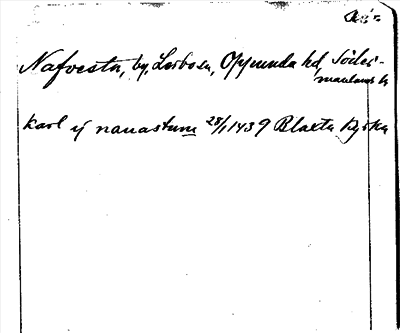 Nafvesta, by, Lerbo sn, Oppunda hd, Söder-
manlands l.
karl ij nauastum 28/1 1439 Blacta Kyrka